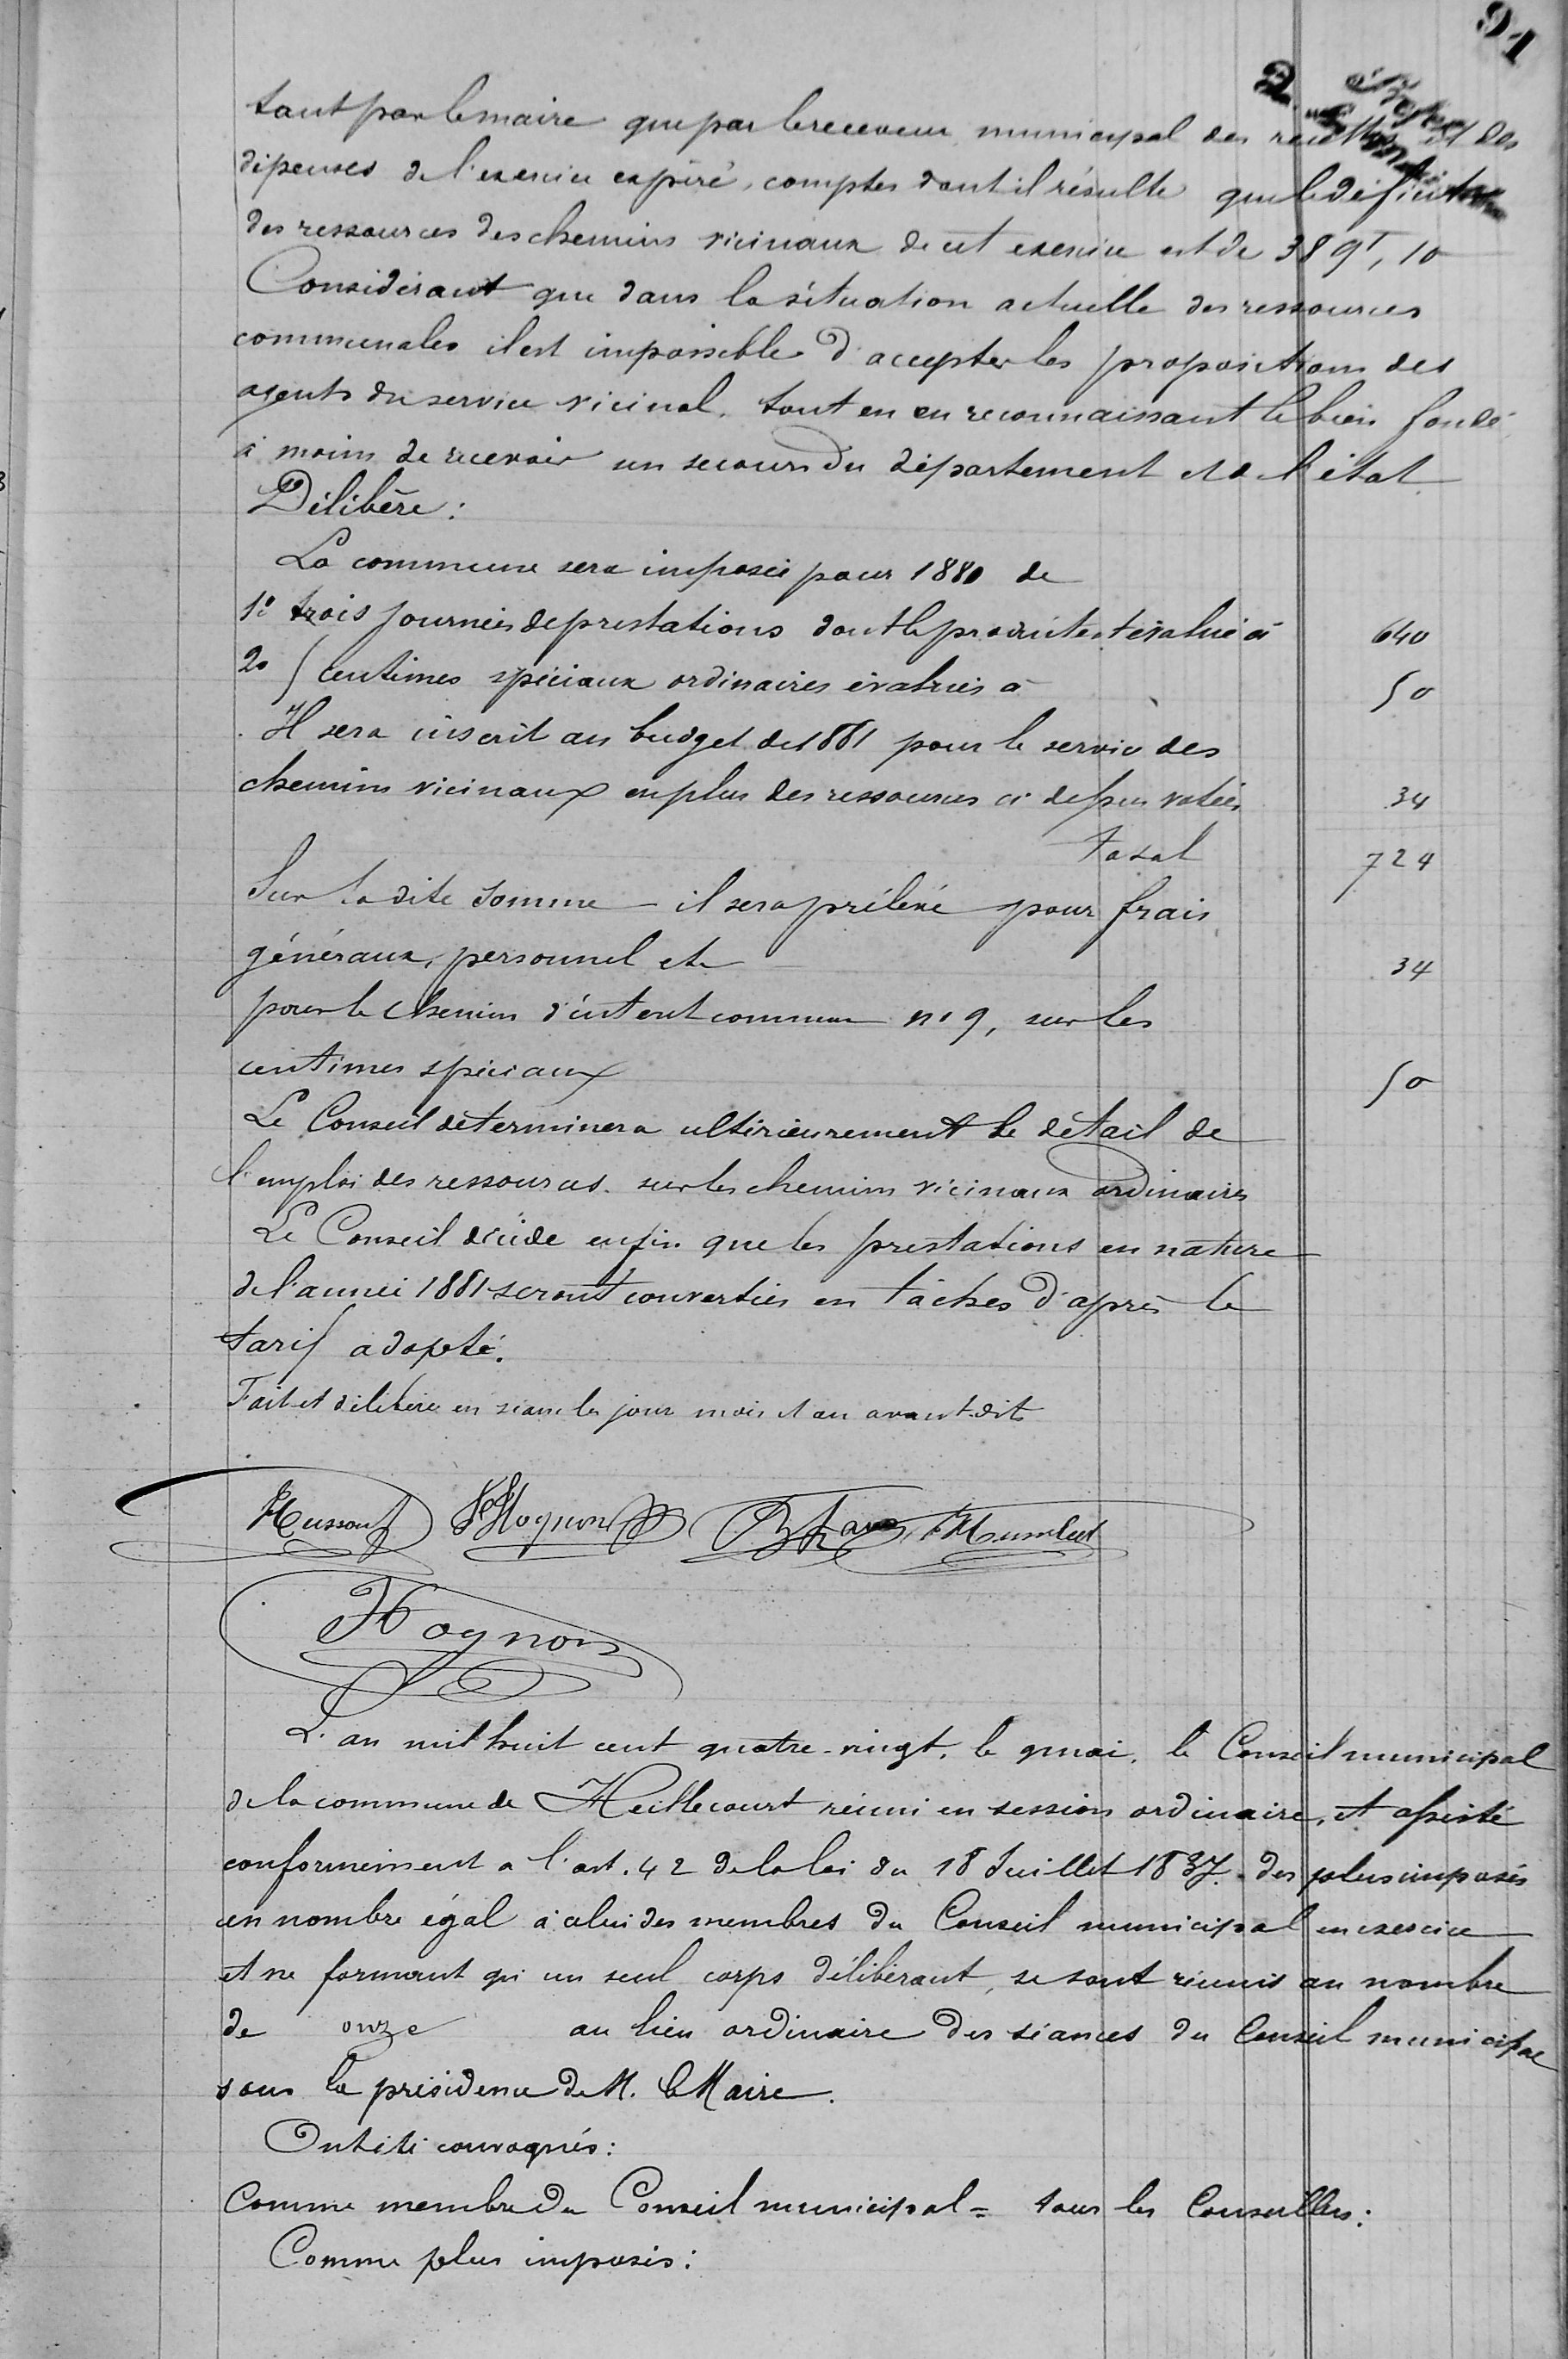 91
2.
tant par le maire que par le receveur municipal des recettes et des
dépenses de l'exercice expiré, comptes dont il résulte que le déficit
des ressources des chemins vicinaux de cet exercice est de 389f, 10
Considérant que dans la situation actuelle des ressources
communales il est impossible d'accepter les propositions des
agents du service vicinal, tout en en reconnaissant le bien fondé
à moins de recevoir un secours du département et de l'état
Délibère:
La commune sera imposée pour 1880 de
1º trois journées de prestations dont le produit est évalué à 640
2º 5 centimes spéciaux ordinaires évalués à 50
Il sera inscrit au budget de 1881 pour le service des
chemins vicinaux en plus des ressources ci dessus votées 34
total 724
Sur la dite somme - il sera prélevé pour frais
généraux, personnel etc 34
pour le chemin d'intérêt commun nº 9, sur les
centimes spéciaux 50
Le Conseil déterminera ultérieurement le détail de
l'emploi des ressources sur les chemins vicinaux ordinaires
Le Conseil décide enfin que les prestations en nature
de l'année 1881 seront converties en tâches d'après le
tarif adopté.
Fait et délibéré en séance les jour mois et an avant dit
Husson Hognon Humbert
Hognon
L'an mil huit cent quatre-vingt, le 9 mai, le Conseil municipal
de la commune de Heillecourt réuni en session ordinaire, et assisté
conformément a l'art. 42 de la loi du 18 Juillet 1837. des plus imposés
en nombre égal à celui des membres du Conseil municipal en exercice
et ne formant qu'un seul corps délibérant, se sont réunis au nombre
de onze au lieu ordinaire des séances du Conseil municipal
sous la présidence de M. le Maire.
Ont été convoqués:
Comme membre du Conseil municipal = tous les Conseillers:
Comme plus imposés: